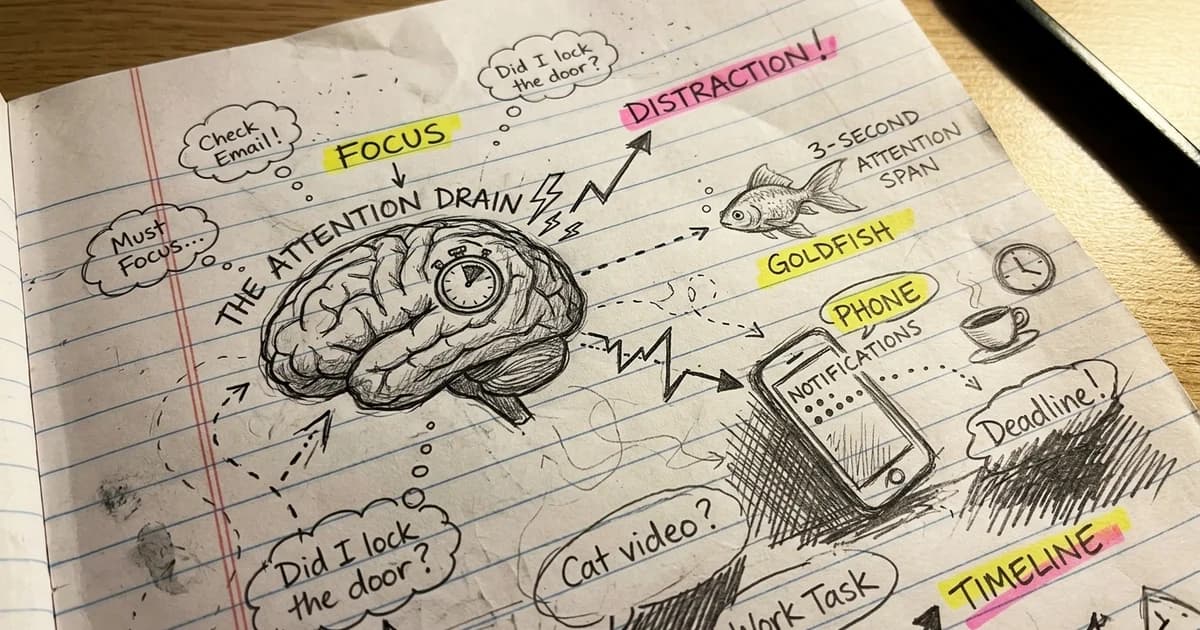 Did I lock
the door?
DISTRACTION!
Check
Email!
FOCUS
3-SECOND
ATTENTION
SPAN
THE ATTENTION DRAIN
Must
Focus...
GOLDFISH
PHONE
NOTIFICATIONS
Deadline!
Did I lock
the door?
Cat video?
Work Task
TIMELINE